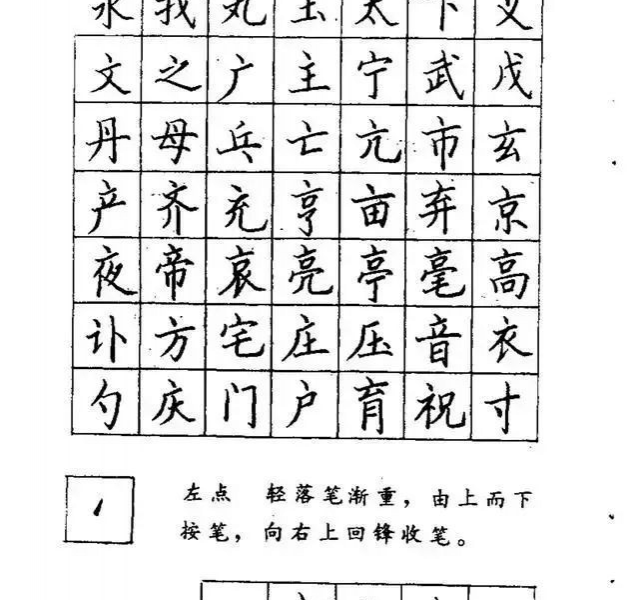 永我丸玉太义
文之广主宁武戊
丹母乓亡亢市玄
产齐充亨亩弃京
夜帝哀亮亭毫高
讣方宅庄压音衣
勺庆门户育祝寸
左点 轻落笔渐重，由上而下
按笔，向右上回锋收笔。